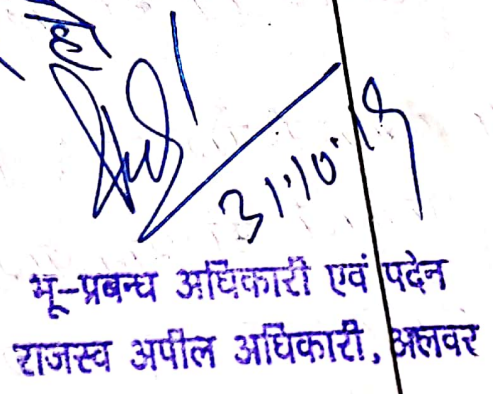 है
31.10.19
भू-प्रबन्ध अधिकारी एवं पदेन
राजस्व अपील अधिकारी, अलवर